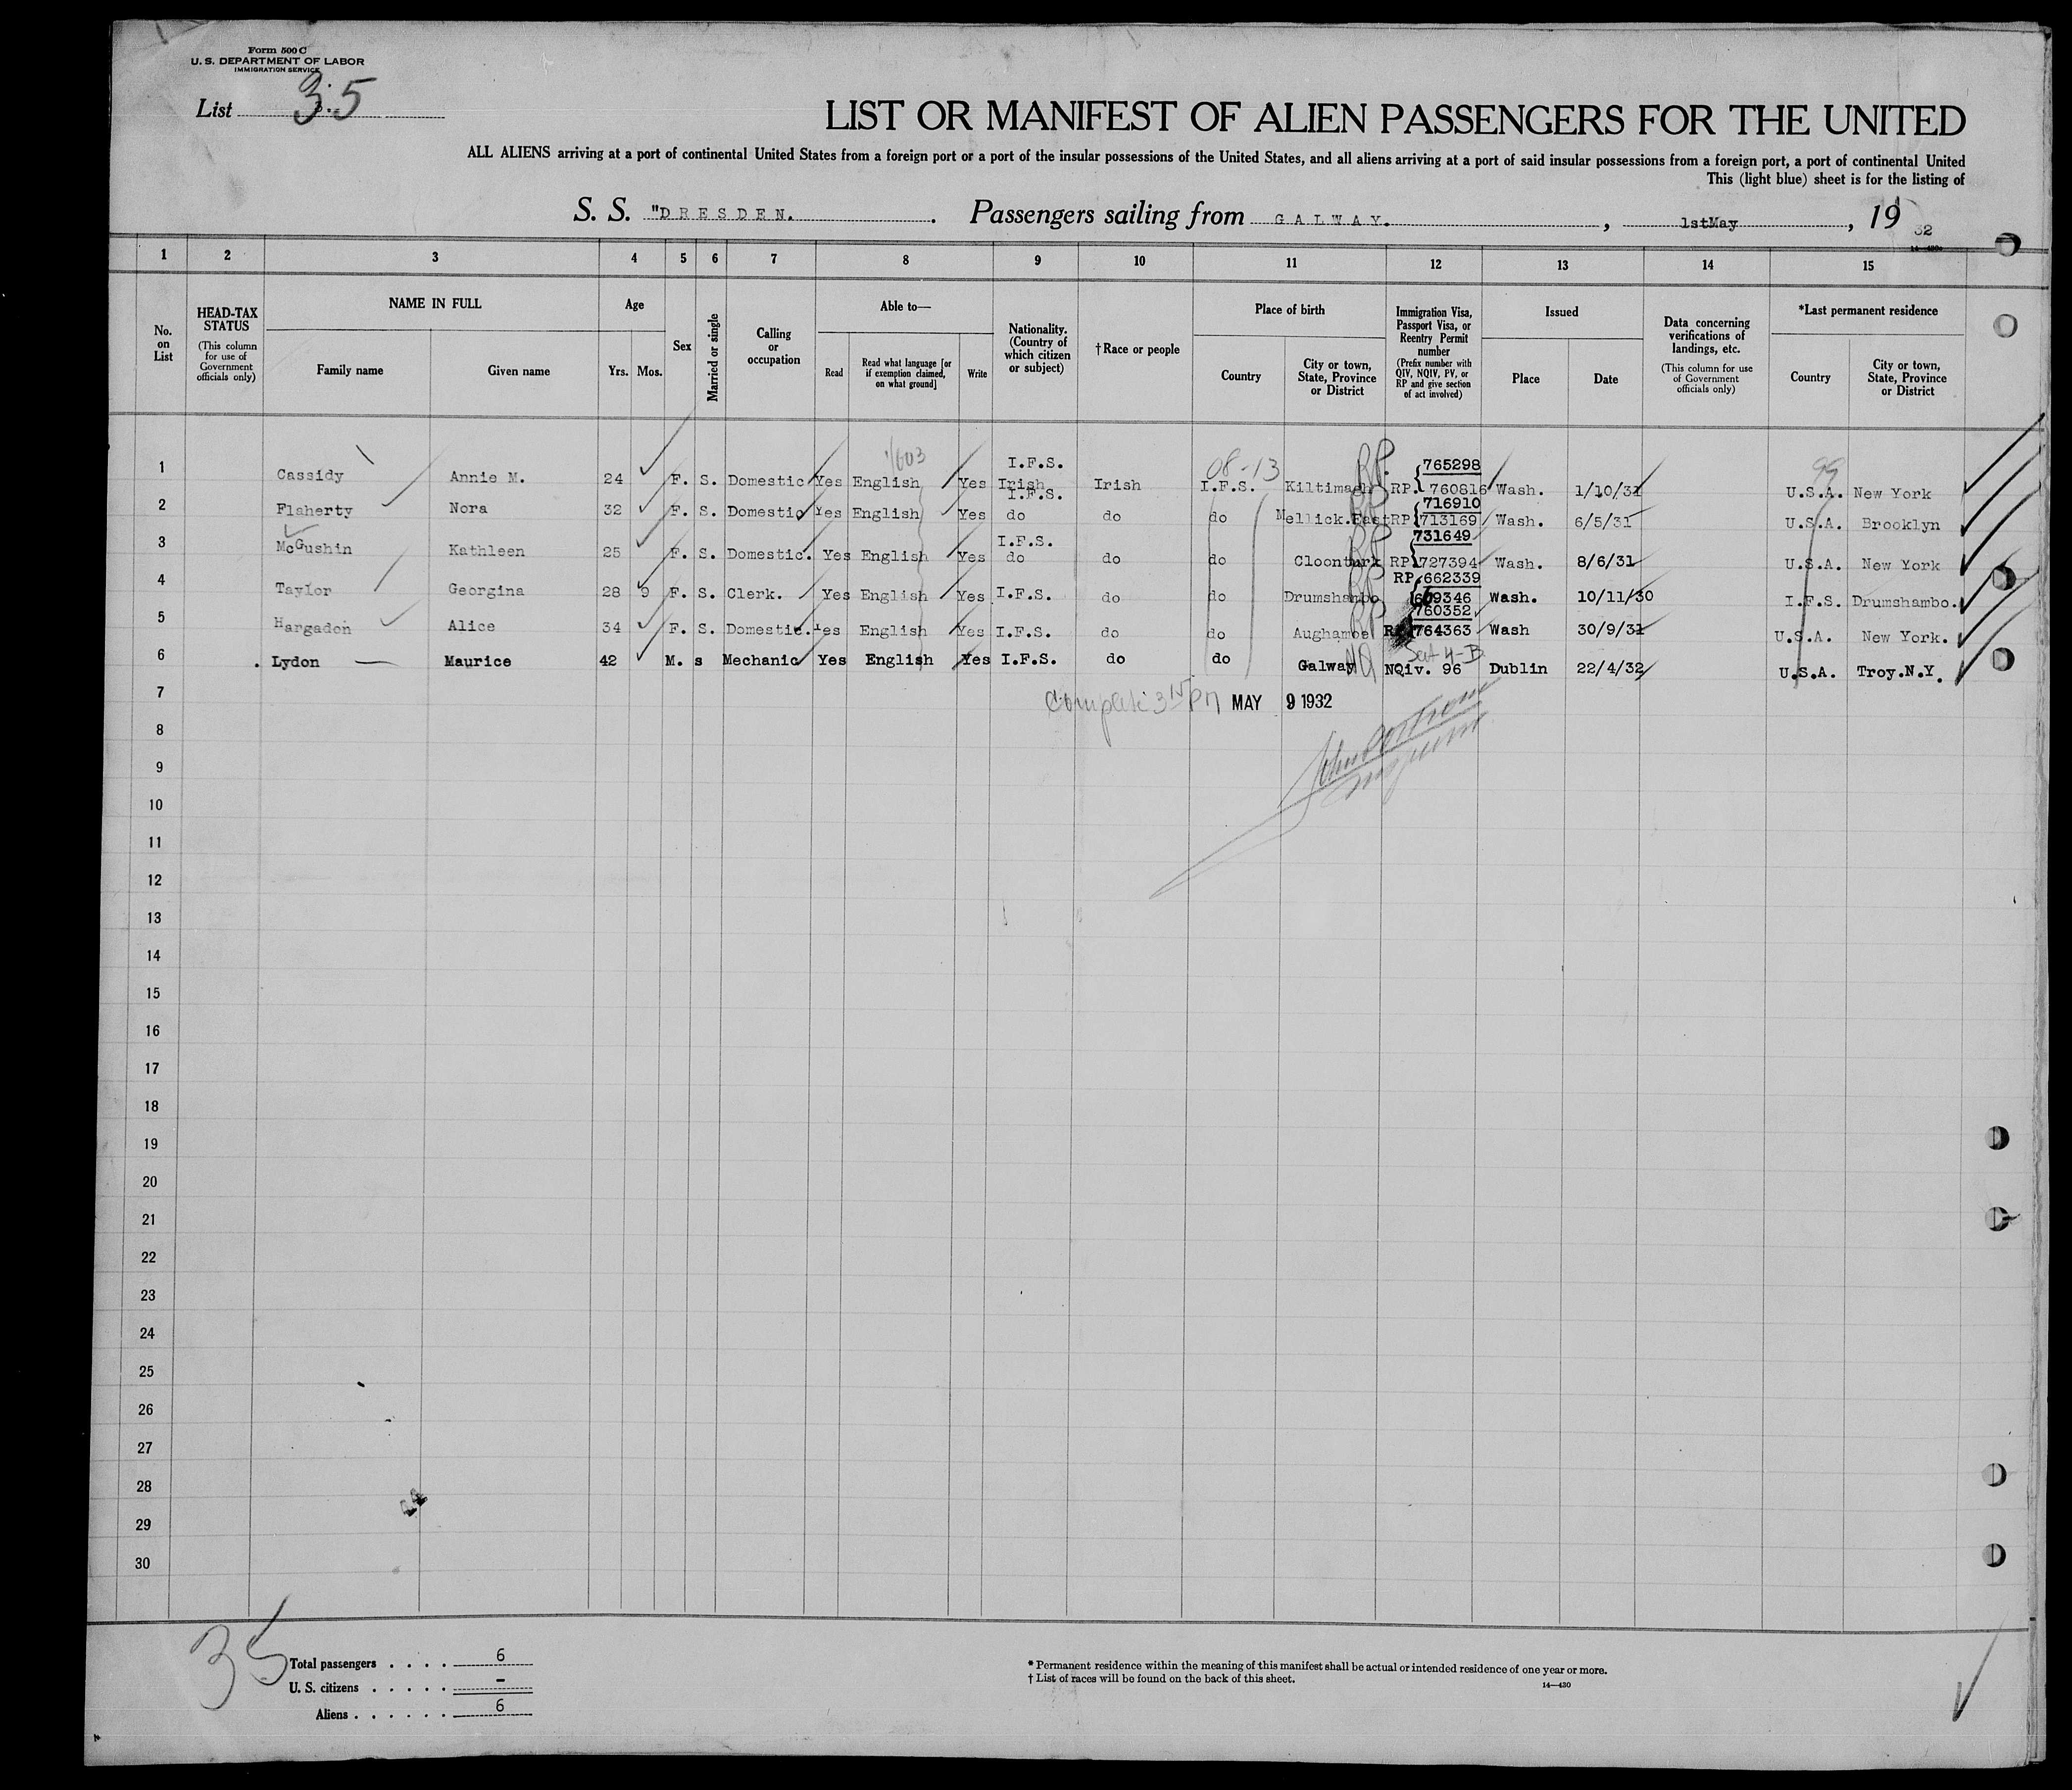 Form 500 C
U. S. DEPARTMENT OF LABOR
IMMIGRATION SERVICE
List 35
LIST OR MANIFEST OF ALIEN PASSENGERS FOR THE UNITED
ALL ALIENS arriving at a port of continental United States from a foreign port or a port of the insular possessions of the United States, and all aliens arriving at a port of said insular possessions from a foreign port, a port of continental United
This (light blue) sheet is for the listing of
S. S. "DRESDEN. . Passengers sailing from GALWAY. , 1stMay , 19 32
1 2 3 4 5 6 7 8 9 10 11 12 13 14 15
No. on List
HEAD-TAX STATUS
(This column for use of Government officials only)
NAME IN FULL
Family name Given name
Age
Yrs. Mos.
Sex
Married or single
Calling or occupation
Able to—
Read Read what language [or if exemption claimed, on what ground] Write
Nationality. (Country of which citizen or subject)
†Race or people
Place of birth
Country City or town, State, Province or District
Immigration Visa, Passport Visa, or Reentry Permit number
(Prefix number with QIV, NQIV, PV, or RP and give section of act involved)
Issued
Place Date
Data concerning verifications of landings, etc.
(This column for use of Government officials only)
*Last permanent residence
Country City or town, State, Province or District
08-13 99
1 Cassidy Annie M. 24 F. S. Domestic Yes English Yes I.F.S. Irish Irish I.F.S. Kiltimagh RP. 765298 760816 Wash. 1/10/31 U.S.A. New York
2 Flaherty Nora 32 F. S. Domestic Yes English Yes I.F.S. do do do Mellick.East RP 716910 713169 Wash. 6/5/31 U.S.A. Brooklyn
3 McGushin Kathleen 25 F. S. Domestic. Yes English Yes I.F.S. do do do Cloonturk RP 731649 727394 Wash. 8/6/31 U.S.A. New York
4 Taylor Georgina 28 9 F. S. Clerk. Yes English Yes I.F.S. do do Drumshambo RP 662339 669346 Wash. 10/11/30 I.F.S. Drumshambo.
5 Hargadon Alice 34 F. S. Domestic. Yes English Yes I.F.S. do do RP 760352 764363 Wash 30/9/31 U.S.A. New York.
6 Lydon Maurice 42 M. s Mechanic Yes English Yes I.F.S. do do Galway NQ NQiv. 96 Sect 4-B Dublin 22/4/32 U.S.A. Troy.N.Y.
7 MAY 9 1932
8
9
10
11
12
13
14
15
16
17
18
19
20
21
22
23
24
25
26
27
28
29
30
35
Total passengers . . . . 6
U. S. citizens . . . . . –
Aliens . . . . . . 6
* Permanent residence within the meaning of this manifest shall be actual or intended residence of one year or more.
† List of races will be found on the back of this sheet.
14—430